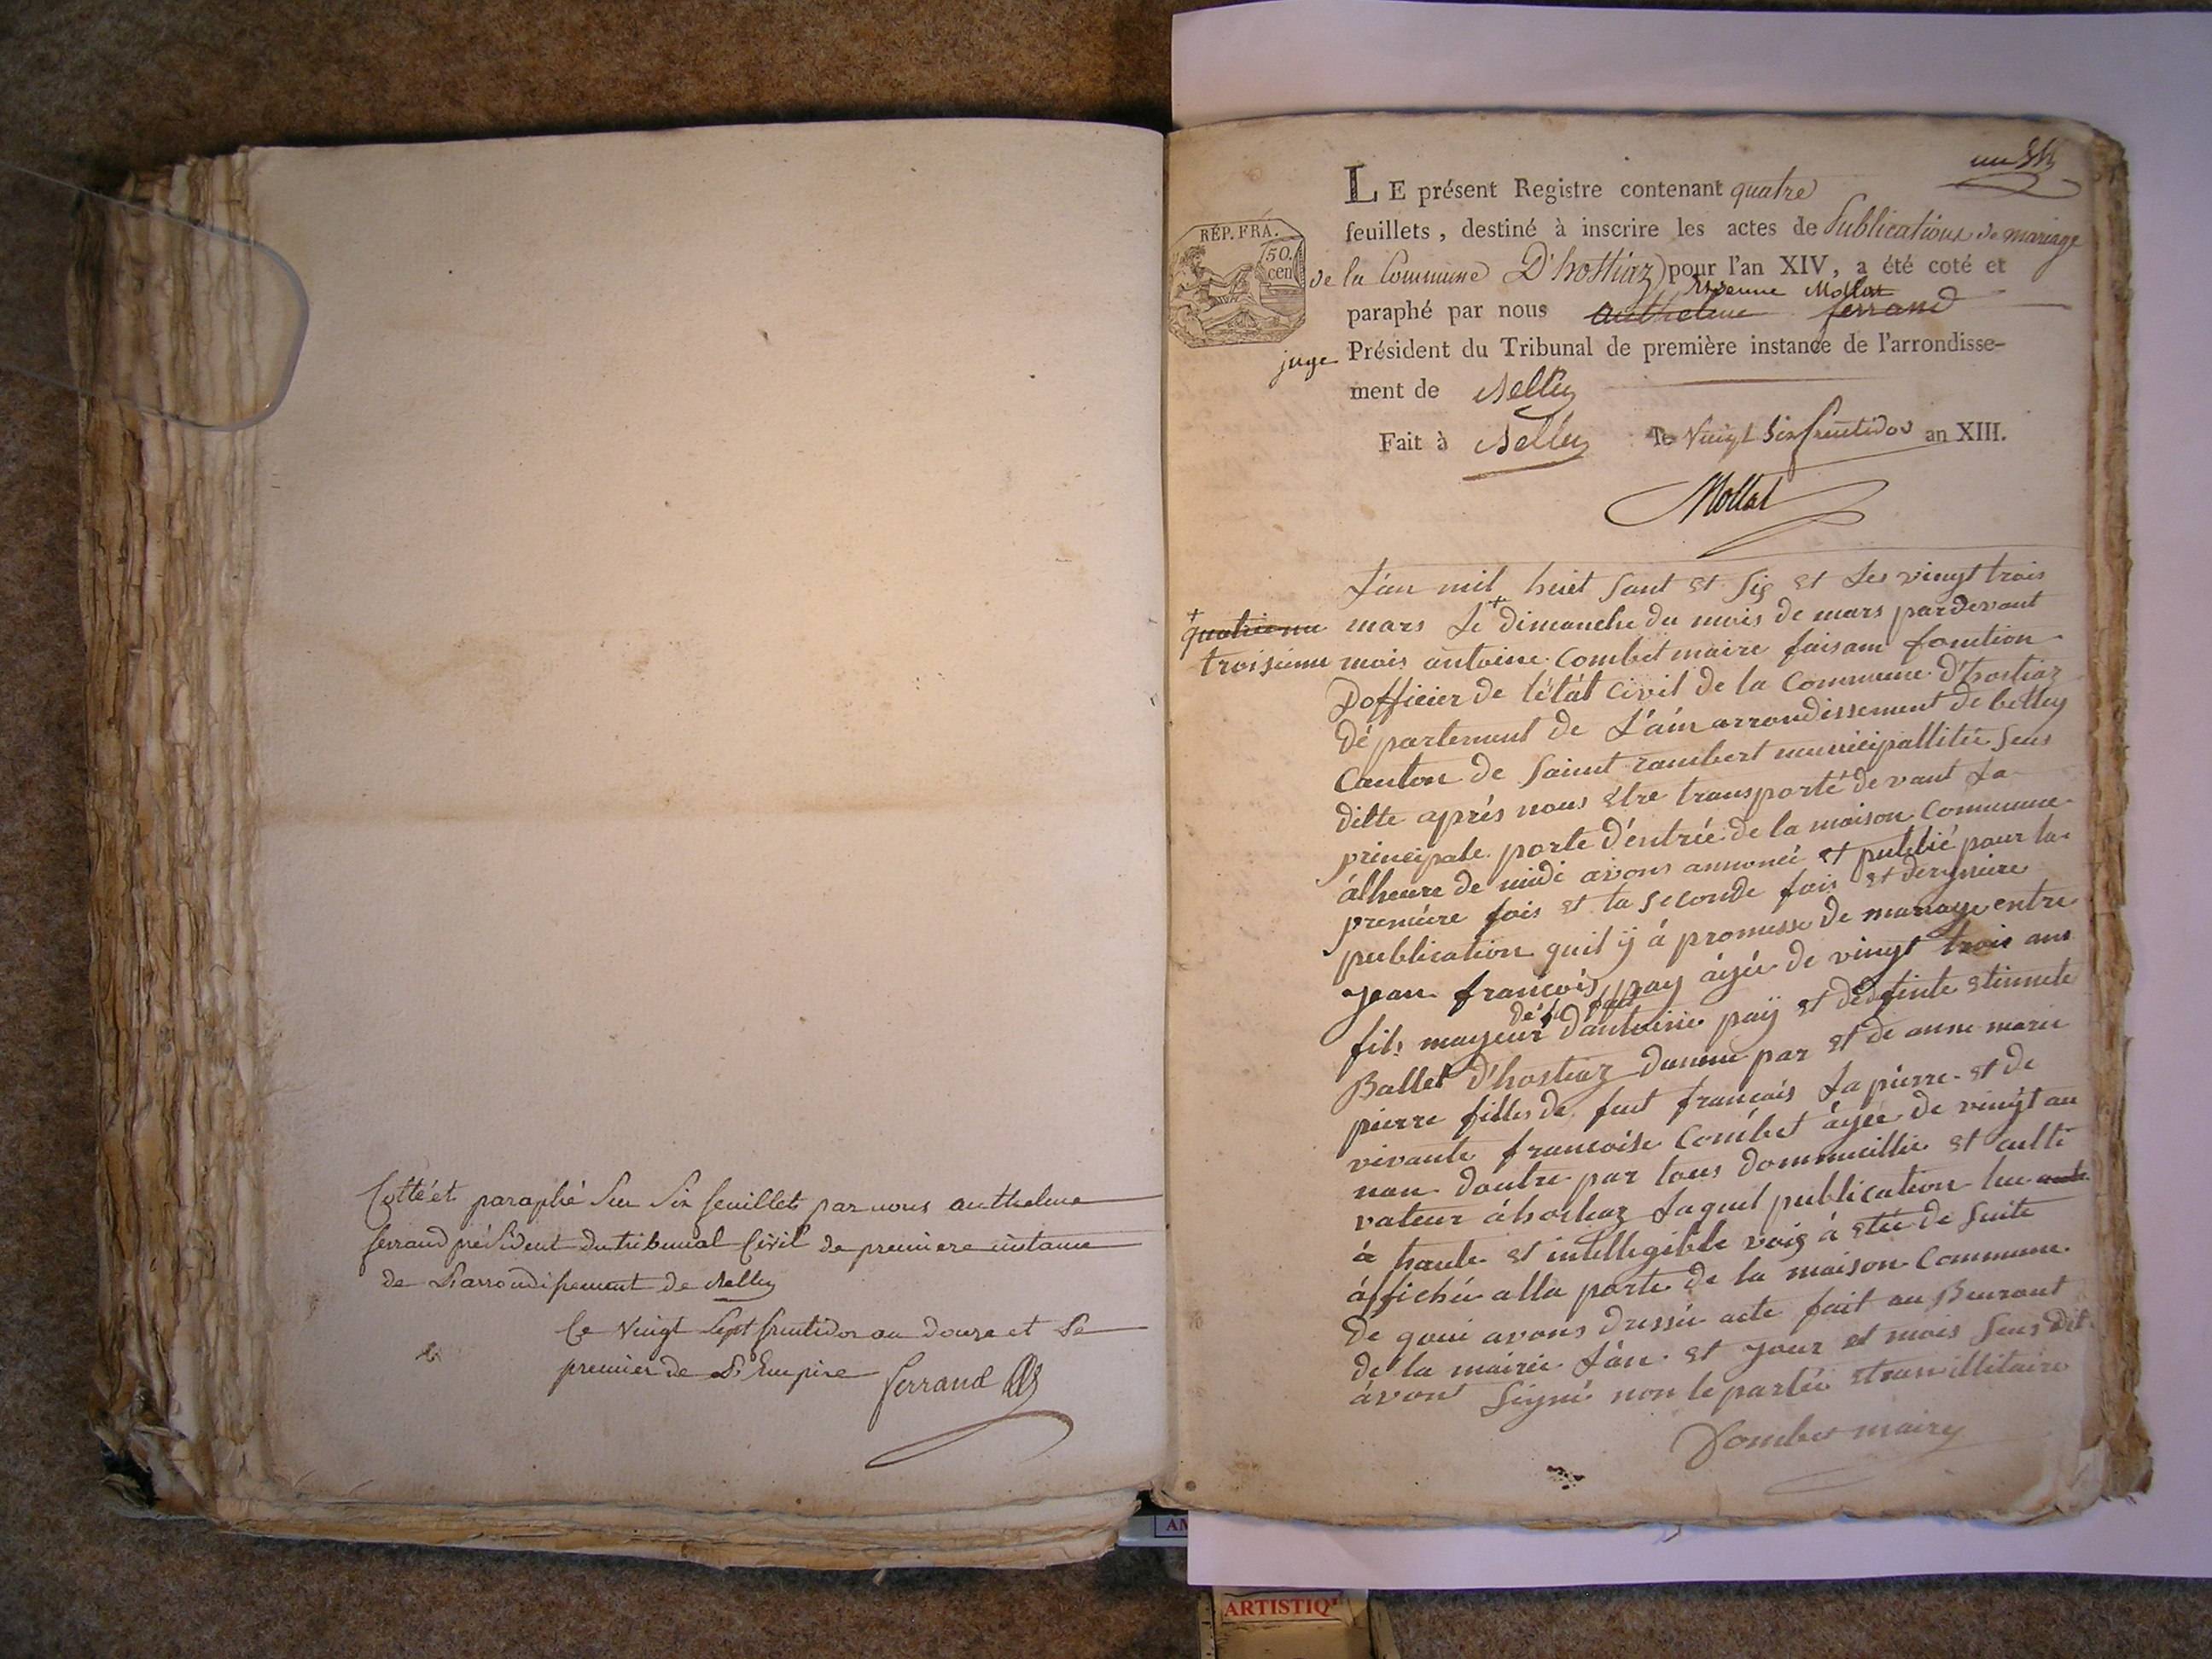 Cotté et paraphé Sur Six feuillets par nous anthelme
ferrand président du tribunal Civil de premiere instance
de L'arrondissement de Belley
Ce Vingt Sept fructidor an douze et Le
premier de L'Empire ferrand
LE présent Registre contenant quatre
feuillets, destiné à inscrire les actes de Publications de mariage
de la Commune D'hostiaz pour l'an XIV, a été coté et
Mollat
paraphé par nous anthelme ferrand
juge Président du Tribunal de première instance de l'arrondisse-
ment de Belley
Fait à Belley le Vingt Six fructidor an XIII.
Mollat
RÉP. FRA.
50
cen
L'an mil huit Sant et Six et Les vingt trois
quatrieme mars Le dimanche du mois de mars pardevant
troisieme mois antoine Combet maire faisant fonction
Dofficier de l'état Civil de la Commune d'hostiaz
département de L'ain arrondissement de belley
Canton de Saint rambert municipallitée Sus
ditte aprés nous être transporté devant La
principale porte d'éntrée de la maison Commune
álheure de midi avons annoncé et publié pour la
premiére fois et la Seconde fois et derniere
publication quil ÿ á promesse de mariage entre
Jean françois pay âgée de vingt trois ans
fils mayeur d'antoine paÿ et defunte etiennete
Ballet d'hostiaz dunne par et de anne marie
pierre filles de feut francois Lapierre et de
vivante francoise Combet âgée de vingt an
non doutre par tous dommicillie et culti
vateur á hostiaz Laquel publication lue
á haute et intelligible voix à etée de Suite
áffichée alla porte de la maison Commune
de quoi avons dressée acte fait au Beuraut
de la mairie L'an et jour et mois Sus dit
ávont Signé non le partée
Combet maire
ARTISTIQ